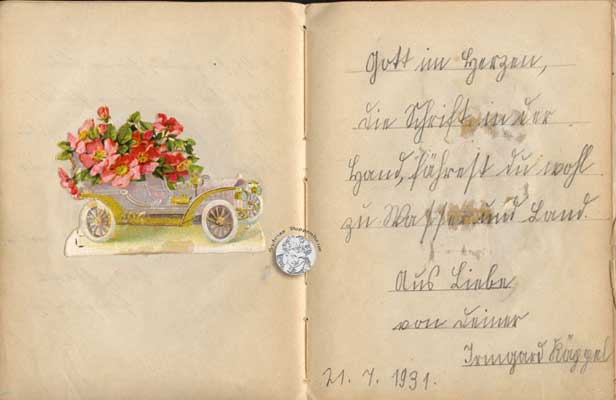 Gott im Herzen,
die Schrift in der
Hand, fährest du wohl
zu Wasser und Land.
Aus Liebe
von deiner
Irmgard Käppel
21. 7. 1931.